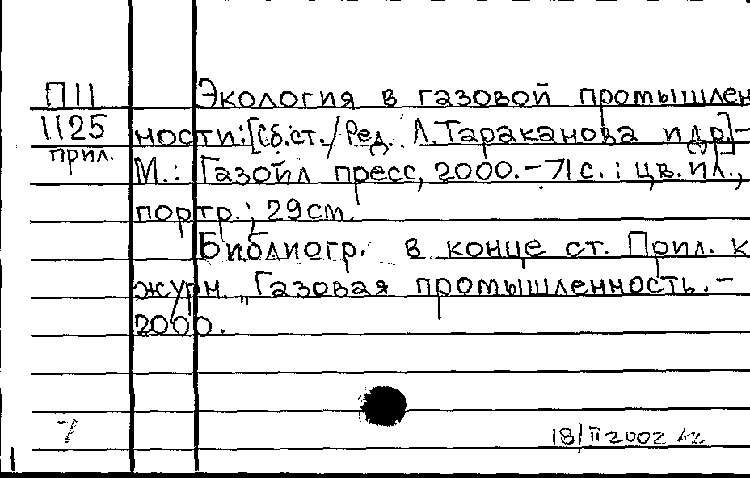 П11 Экология в газовой промышлен
1125 ности:[Сб.ст./Ред. Л.Тараканова и др]-
прил. М.: Газойл пресс, 2000.-71с.: цв.ил.,
портр.; 29cm.
Библиогр. в конце ст. Прил. к
журн. „Газовая промышленность.-
2000.
7
18/II 2002